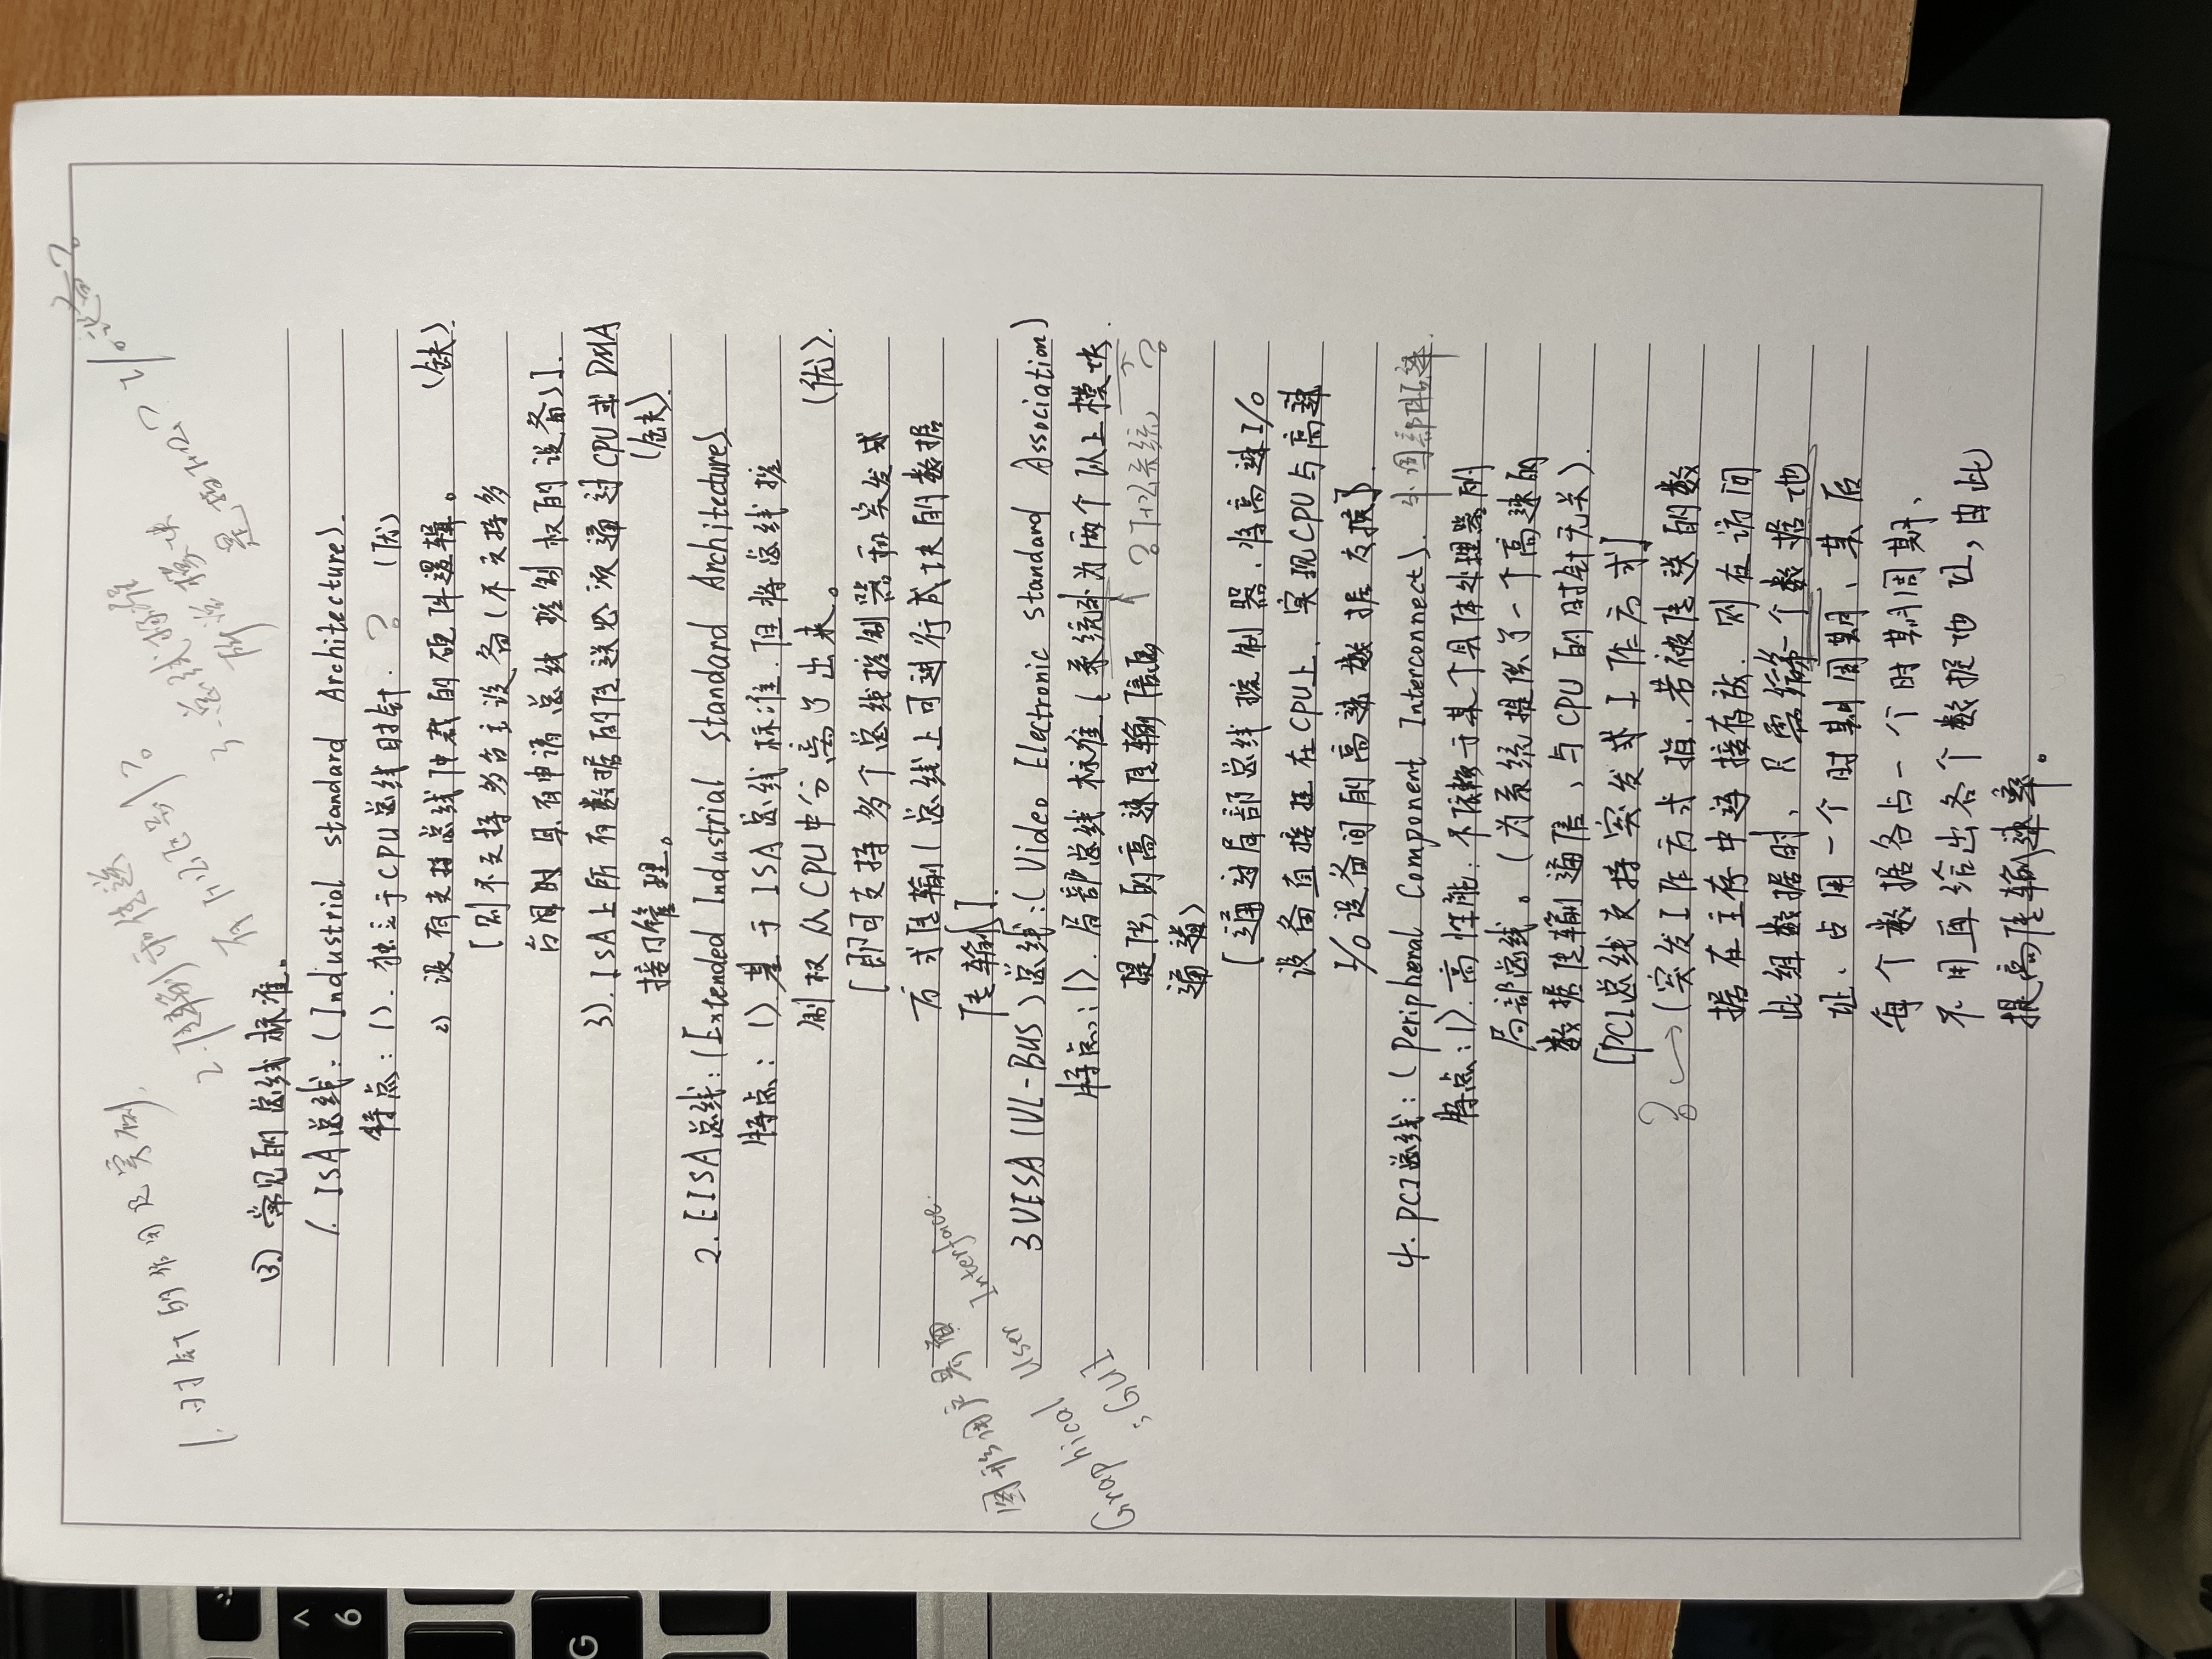 1. 时针的作用及实例.
2. 传输和传送
有什么区别?
3. 总线标准
所说模块
是指什么? I/O设备?
(3) 常见的总线标准。
1. ISA总线:(Industrial standard Architecture).
特点:1). 独立于CPU总线时针. ? (优)
2) 没有支持总线仲裁的硬件逻辑。 (缺).
[则不支持多台主设备(不支持多
台同时具有申请总线控制权的设备)].
3). ISA上所有数据的传送必须通过CPU或DMA
接口管理。 (缺).
2. EISA总线:(Extended Industrial standard Architecture)
特点:1) 基于ISA总线标准.但将总线控
制权从CPU中分离了出来。 (优).
[即可支持多个总线控制器和突发式
方式传输(总线上可进行成块的数据
传输].
图形用户界面
Graphical User Interface.
;GUI
3 VESA(VL-BUS)总线:(Video Electronic standard Association)
特点:1). 局部总线标准(系统外为两个以上模块.
提供的高速传输信息 ↑ ?什么系统 ↑ ?
通道)
[通过局部总线控制器.将高速I/O
设备直接挂在CPU上.实现CPU与高速
I/O设备间的高速数据交换].
4. PCI总线:(Peripheral Component Interconnect). 外围部件
特点:1). 高性能:不依赖于某个具体处理器的
局部总线。(为系统提供了一个高速的
数据传输通信,与CPU的时针无关).
[PCI总线支持突发式工作方式]
? → (突发工作方式指.若被传送的数
据在主存中连接存放.则在访问
此组数据时,只需给第一个数据地
址.占用一个时期周期,其后
每个数据各占一个时期周期、
不用再给出各个数据地址,由此
提高传输速率。